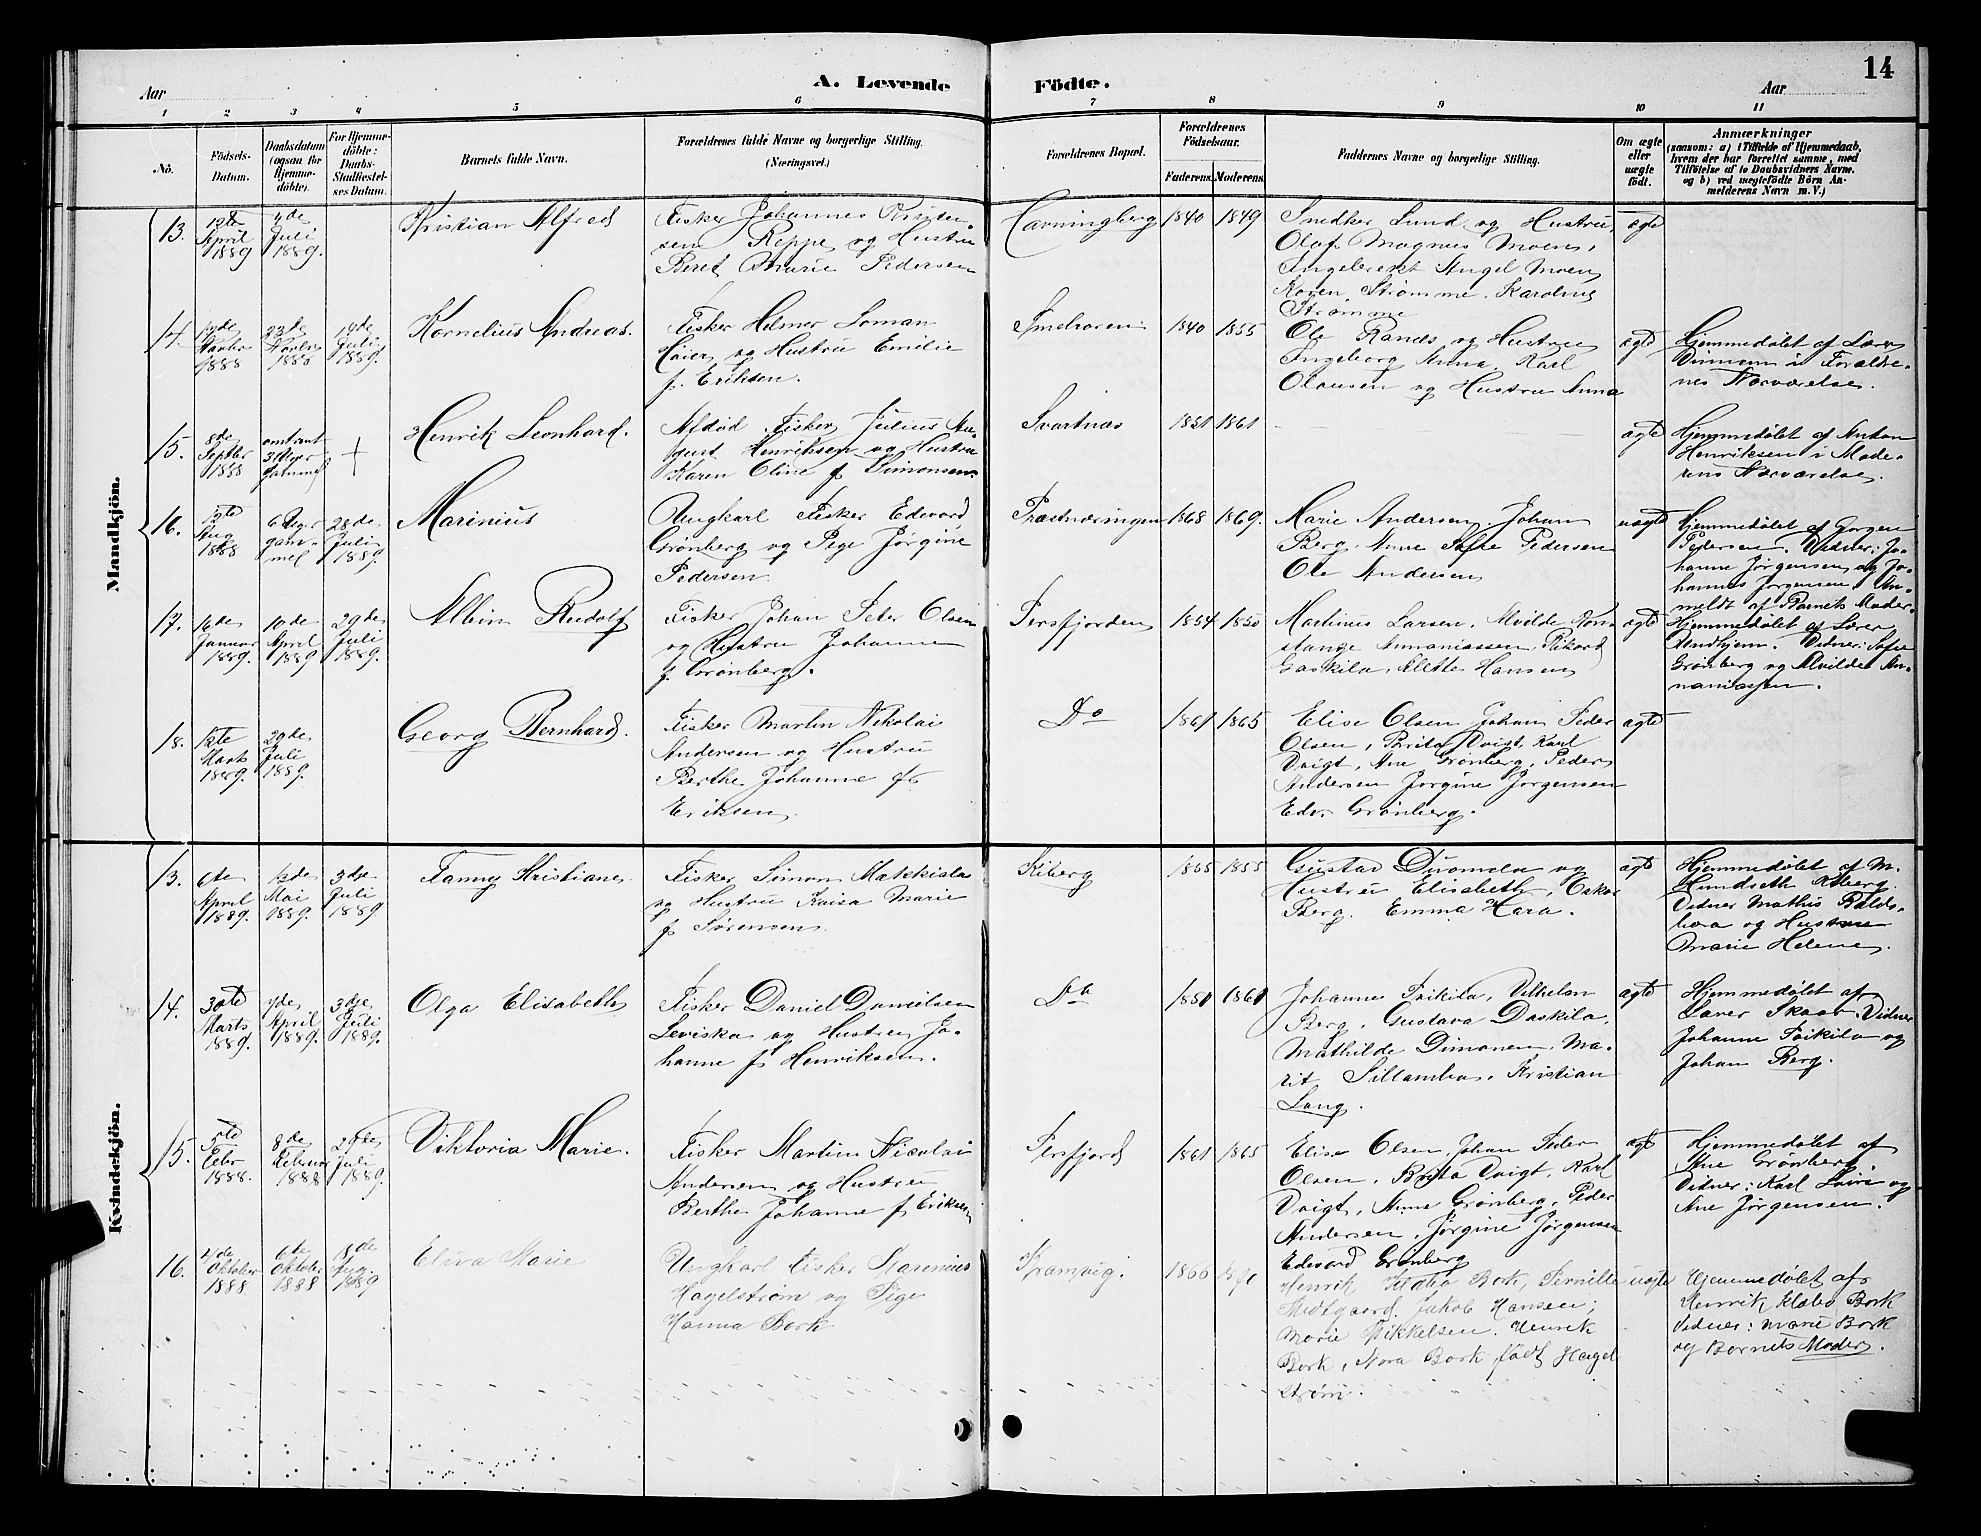 14
A. Levende Födte.
Aar Aar
1 2 3 4 5 6 7 8 9 10 11
No.
Födsels-
Datum.
Daabsdatum
(ogsaa for
Hjemme-
döbte).
For Hjemme-
döbte:
Daabs-
Stadfæstel-
ses Datum.
Barnets fulde Navn.
Forældrenes fulde Navne og borgerlige Stilling.
(Næringsvei.)
Forældrenes Bopæl.
Forældrenes
Födselsaar.
Faderens. Moderens.
Faddernes Navne og borgerlige Stilling.
Om ægte
eller
uægte
födt.
Anmærkninger
(saasom: a) i Tilfælde af Hjemmedaab,
hvem der har forrettet samme, med
Tilföielse af to Daabsvidners Navne.
og b) ved uægtefödte Börn An-
melderens Navn m. V.)
Mandkjön.
13.
12te
April
1889
4de
Juli
1889.
Kristian Alfred
Fisker Johannes Kristen
sen Reppe og Hustru
Beret Marie Pedersen
Havningberg
1840 1849
Snedker Lund og Hustru,
Olaf Magnus Moen,
Ingebrekt Angel Moen
Karen Strømme. Karoline
Strømme
ægte
14.
Novbr
1888
23de
Novbr
1888
14de
Juli
1889.
Kornelius Andreas.
Fisker Helmer Loman
Høier og Hustru Emilie
f. Eriksen.
Smelroren
1840 1855
Ole Randes og Hustru
Ingeborg Anna. Karl
Olausen og Hustru Anna
ægte
Hjemmedøbt af Lærer
i Foreldre-
nes Nærværelse.
15.
8de
Septbr
1888
omtrent
3 Uger
gammel
+
Henrik Leonhard.
Afdød Fisker Julius Au-
gust Henriksen og Hustru
Karen Oline f. Simonsen
Svartnæs
1851 1861
ægte
Hjemmedøbt af Anton
Henriksen i Mode-
rens Nærværelse.
16.
Aug
1888
6 Uger
gam-
mel
28de
Juli
1889.
Marinius
Ungkarl Fisker Edevard
Grønberg og Pige Jørgine
Pedersen
Præstnæringen
1868 1869.
Marie Andersen. Johan
Berg. Anne Sofie Pedersen
Ole Andersen
uægte
Hjemmedøbt af Jørgen
Pedersen. Vidner: Jo-
hanne Jørgensen og Jo-
hannes Jørgensen. An-
meldt af Barnets Moder.
17.
16de
Januar
1889.
10de
April
1889
29de
Juli
1889.
Albin Rudolf
Fisker Johan Peter Olsen
og Hustru Johanne
f. Grønberg.
Persfjorden
1854 1850
Martinus Larsen, Alvilde Kon-
stanze Annaniassen, Rikard
Gaskila, Elette Hansen
ægte
Hjemmedøbt af Lærer
Vidner: Sofie
Grønberg og Alvilde An-
naniassen.
18.
12te
Marts
1889.
29de
Juli
1889.
Georg Bernhard.
Fisker Martin Nikolai
Andersen og Hustru
Berthe Johanne f.
Eriksen.
Do
1861 1865
Elise Olsen, Johan Peder
Olsen, Brita Voigt, Karl
Voigt, Ane Grønberg, Peder
Andersen Jørgine Jørgensen
Edv. Grønberg.
ægte
Kvindekjön.
13.
6te
April
1889.
12de
Mai
1889.
3dje
Juli
1889
Fanny Kristiane
Fisker Simon Makkiala
og Hustru Kaisa Marie
f. Sørensen.
Kiberg
1855 1855
Gustav Duomela og
Hustru Elisabeth, Oskar
Berg. Emma Hara.
ægte
Hjemmedøbt af M.
Hundseth Kiberg.
Vidner Mathis
og Hustru
Marie Helene.
14.
30te
Marts
1889.
7de
April
1889.
3dje
Juli
1889.
Olga Elisabeth
Fisker Daniel Danielsen
Leviska og Hustru Jo-
hanne f. Henriksen.
Do
1851 1861
Johanne Poikila, Vilhelm
Berg, Gustava Daskila,
Mathilde Dimonen, Ma-
rit Sillamba, Kristian
Lang.
ægte
Hjemmedøbt af
Lærer Skaar. Vidner
Johanne Poikila og
Johan Berg.
15.
5te
Febr
1888.
8de
Februar
1888
29de
Juli
1889.
Viktoria Marie.
Fisker Martin Nicolai
Andersen og Hustru
Berthe Johanne f. Eriksen
Persfjord
1861 1865
Elise Olsen, Johan Peder
Olsen, Brita Voigt, Karl
Voigt, Anne Grønberg, Peder
Andersen, Jørgine Jørgensen
Edevard Grønberg
ægte
Hjemmedøbt af
Ane Grønberg,
Vidner: Karl og
Ane Jørgensen.
16.
4de
Oktober
1888.
6te
Oktober
1888
18de
Aug.
1889
Eliva Marie
Ungkarl Fisker Marenius
Hagelstrøm og Pige
Hanna Bork
Spramvig.
1866
Henrik Klæbo Bork, Pernille
Midtgaard, Jakob Hansen,
Marie Mikkelsen. Henrik
Bork, Nora Bork født Hagel
strøm.
uægte
Hjemmedøbt af
Henrik Klæbo Bork
Vidner: Marie Bork
og Barnets Moder.